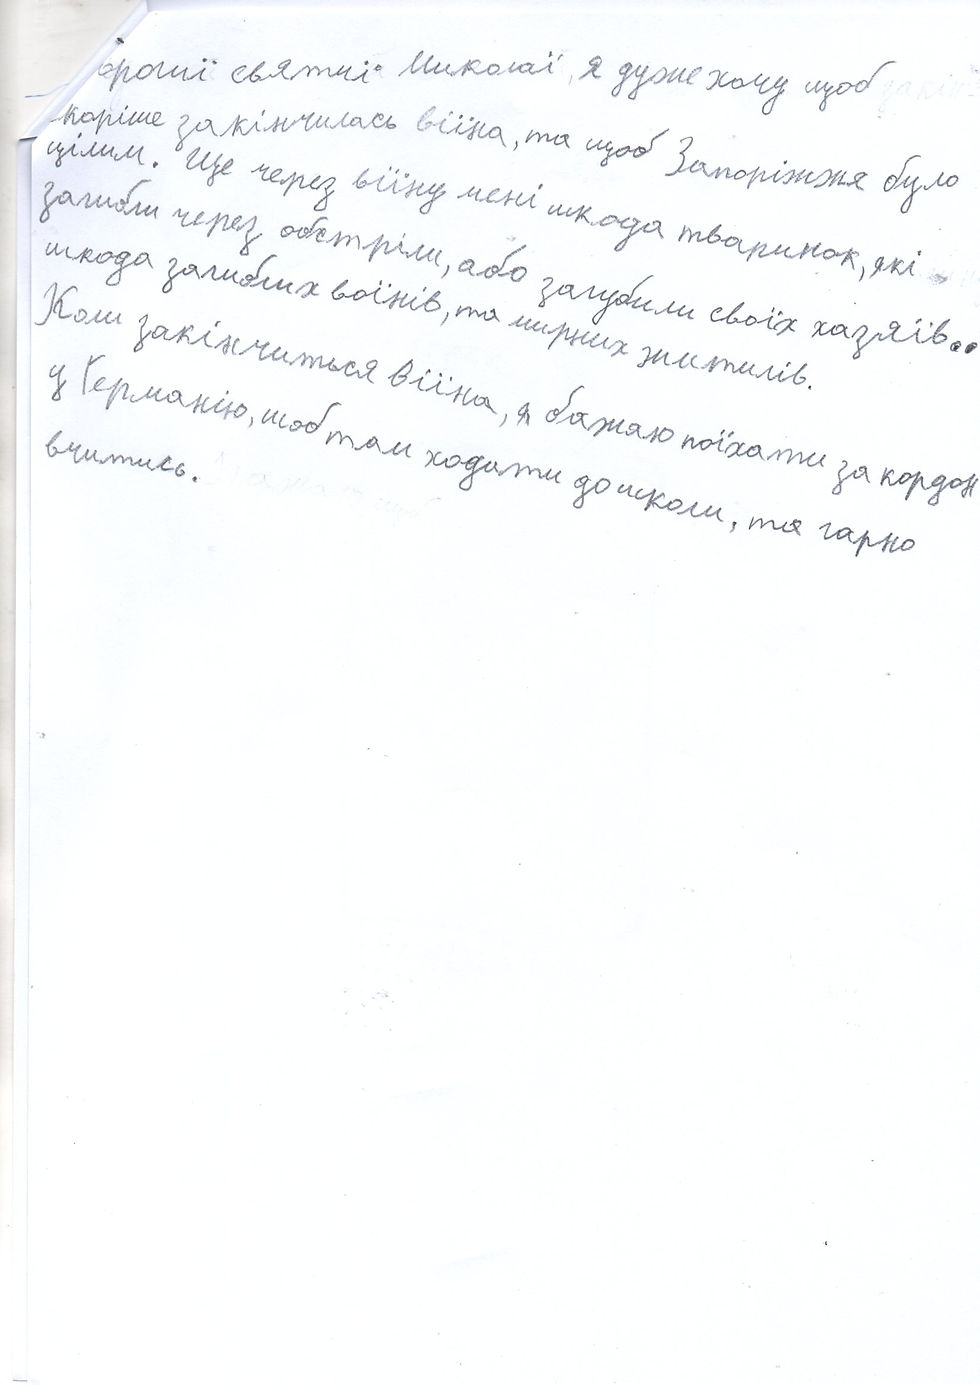 орогий святий Миколай, я дуже хочу щоб
скоріше закінчилась війна, та щоб Запоріжжя було
цілим. Ще через війну мені шкода тваринок, які
загибли через обстріли, або загубили своїх хазяїв..
шкода загиблих воїнів, та мирних жителів.
Коли закінчиться війна, я бажаю поїхати за кордон
у Германію, щоб там ходити до школи, та гарно
вчитись.